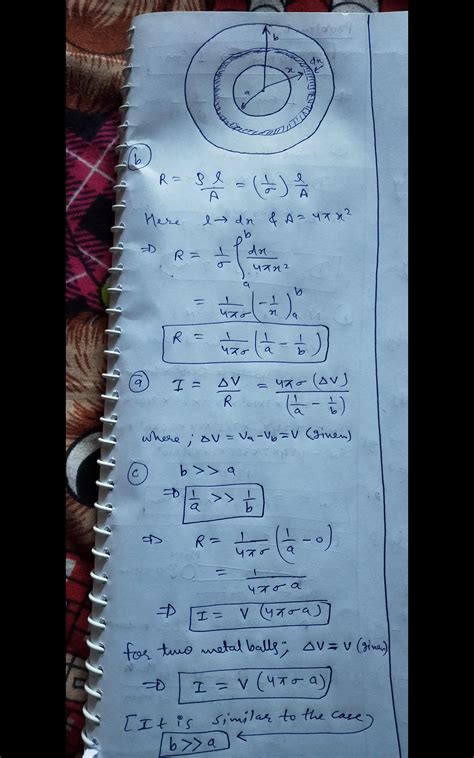 b
dx
x
a
(b)
R = ρ l/A = (1/σ) l/A
Here l → dx & A = 4πx²
⇒ R = 1/σ ∫ₐᵇ dx/4πx²
= 1/4πσ (-1/x)ₐᵇ
R = 1/4πσ (1/a - 1/b)
(a) I = ΔV/R = 4πσ(ΔV)/(1/a - 1/b)
where; ΔV = Va - Vb = V (given)
(c) b >> a
⇒ 1/a >> 1/b
⇒ R = 1/4πσ (1/a - 0)
= 1/4πσa
⇒ I = V(4πσa)
for two metal balls; ΔV = V (given)
⇒ I = V(4πσa)
[It is similar to the case)
b >> a